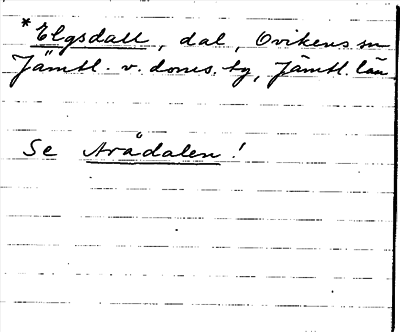 *Elgsdall, dal, Ovikens sn
Jämtl. v. doms. by, Jämtl. län
Se Arådalen!